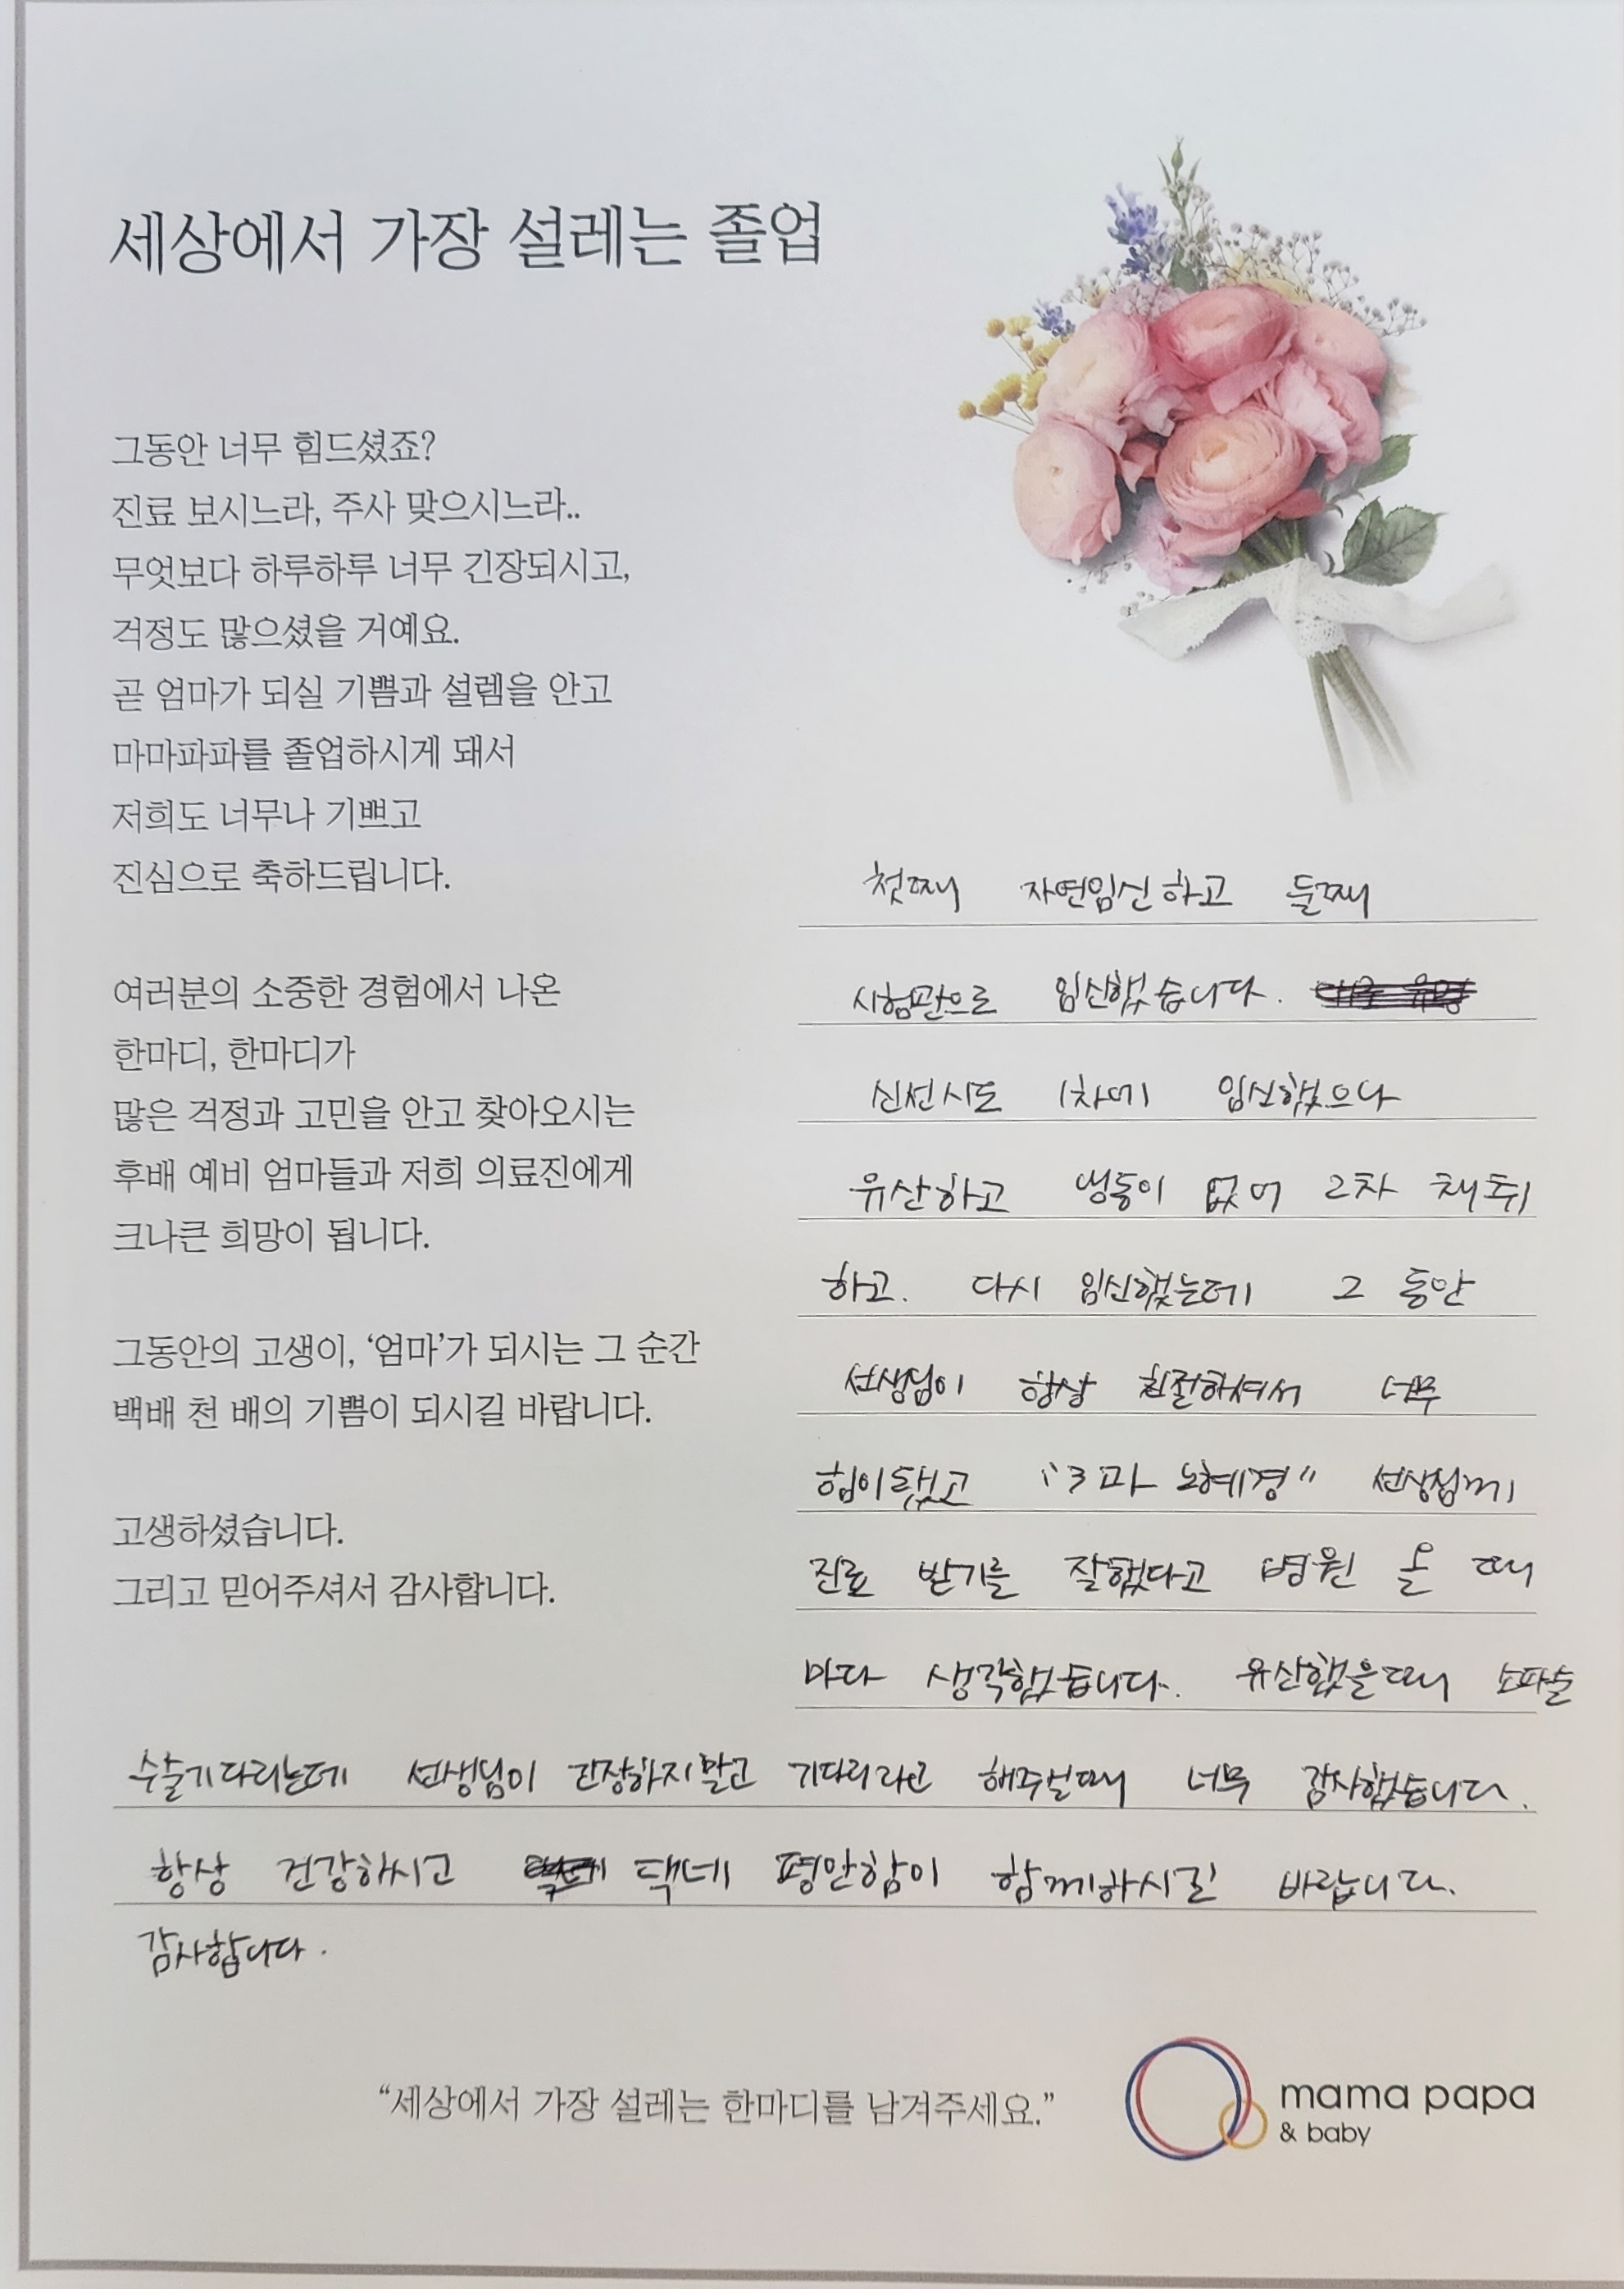 세상에서 가장 설레는 졸업
그동안 너무 힘드셨죠?
진료 보시느라, 주사 맞으시느라..
무엇보다 하루하루 너무 긴장되시고,
걱정도 많으셨을 거예요.
곧 엄마가 되실 기쁨과 설렘을 안고
마마파파를 졸업하시게 돼서
저희도 너무나 기쁘고
진심으로 축하드립니다.
여러분의 소중한 경험에서 나온
한마디, 한마디가
많은 걱정과 고민을 안고 찾아오시는
후배 예비 엄마들과 저희 의료진에게
크나큰 희망이 됩니다.
그동안의 고생이, ‘엄마’가 되시는 그 순간
백배 천 배의 기쁨이 되시길 바랍니다.
고생하셨습니다.
그리고 믿어주셔서 감사합니다.
첫째 자연임신하고 둘째
시험관으로 임신했습니다.
신선시도 1차에 임신했으나
유산하고 냉동이 없어 2차 채취
하고. 다시 임신했는데 그 동안
선생님이 항상 친절하셔서 너무
힘이됐고 "3과 노혜경" 선생님께
진료 받기를 잘했다고 병원 올 때
마다 생각했습니다. 유산했을때 소파술
수술기다리는데 선생님이 긴장하지말고 기다리라고 해주실때 너무 감사했습니다.
항상 건강하시고 댁네 평안함이 함께하시길 바랍니다.
감사합니다.
“세상에서 가장 설레는 한마디를 남겨주세요.”
mama papa
& baby